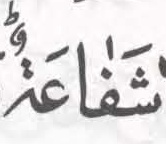 شَفَاعَةٌ